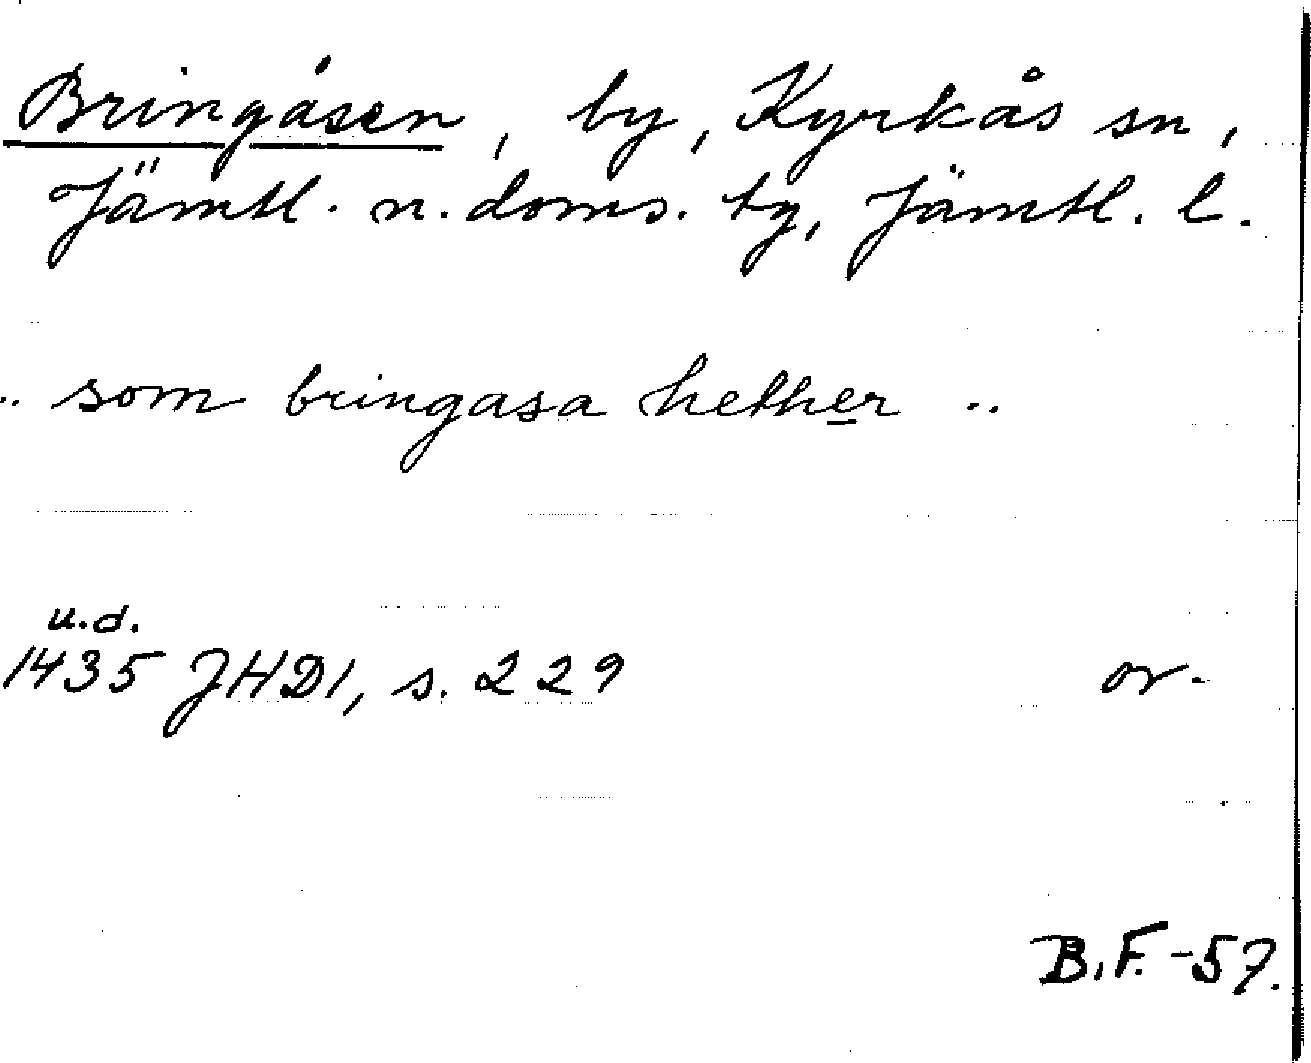 Bringåsen, by, Kyrkås sn,
Jämtl. n. doms. tg, Jämtl. l.
.. som bringasa hether ..
u.d.
1435 JHD1, s. 229 or.
B.F. -57.